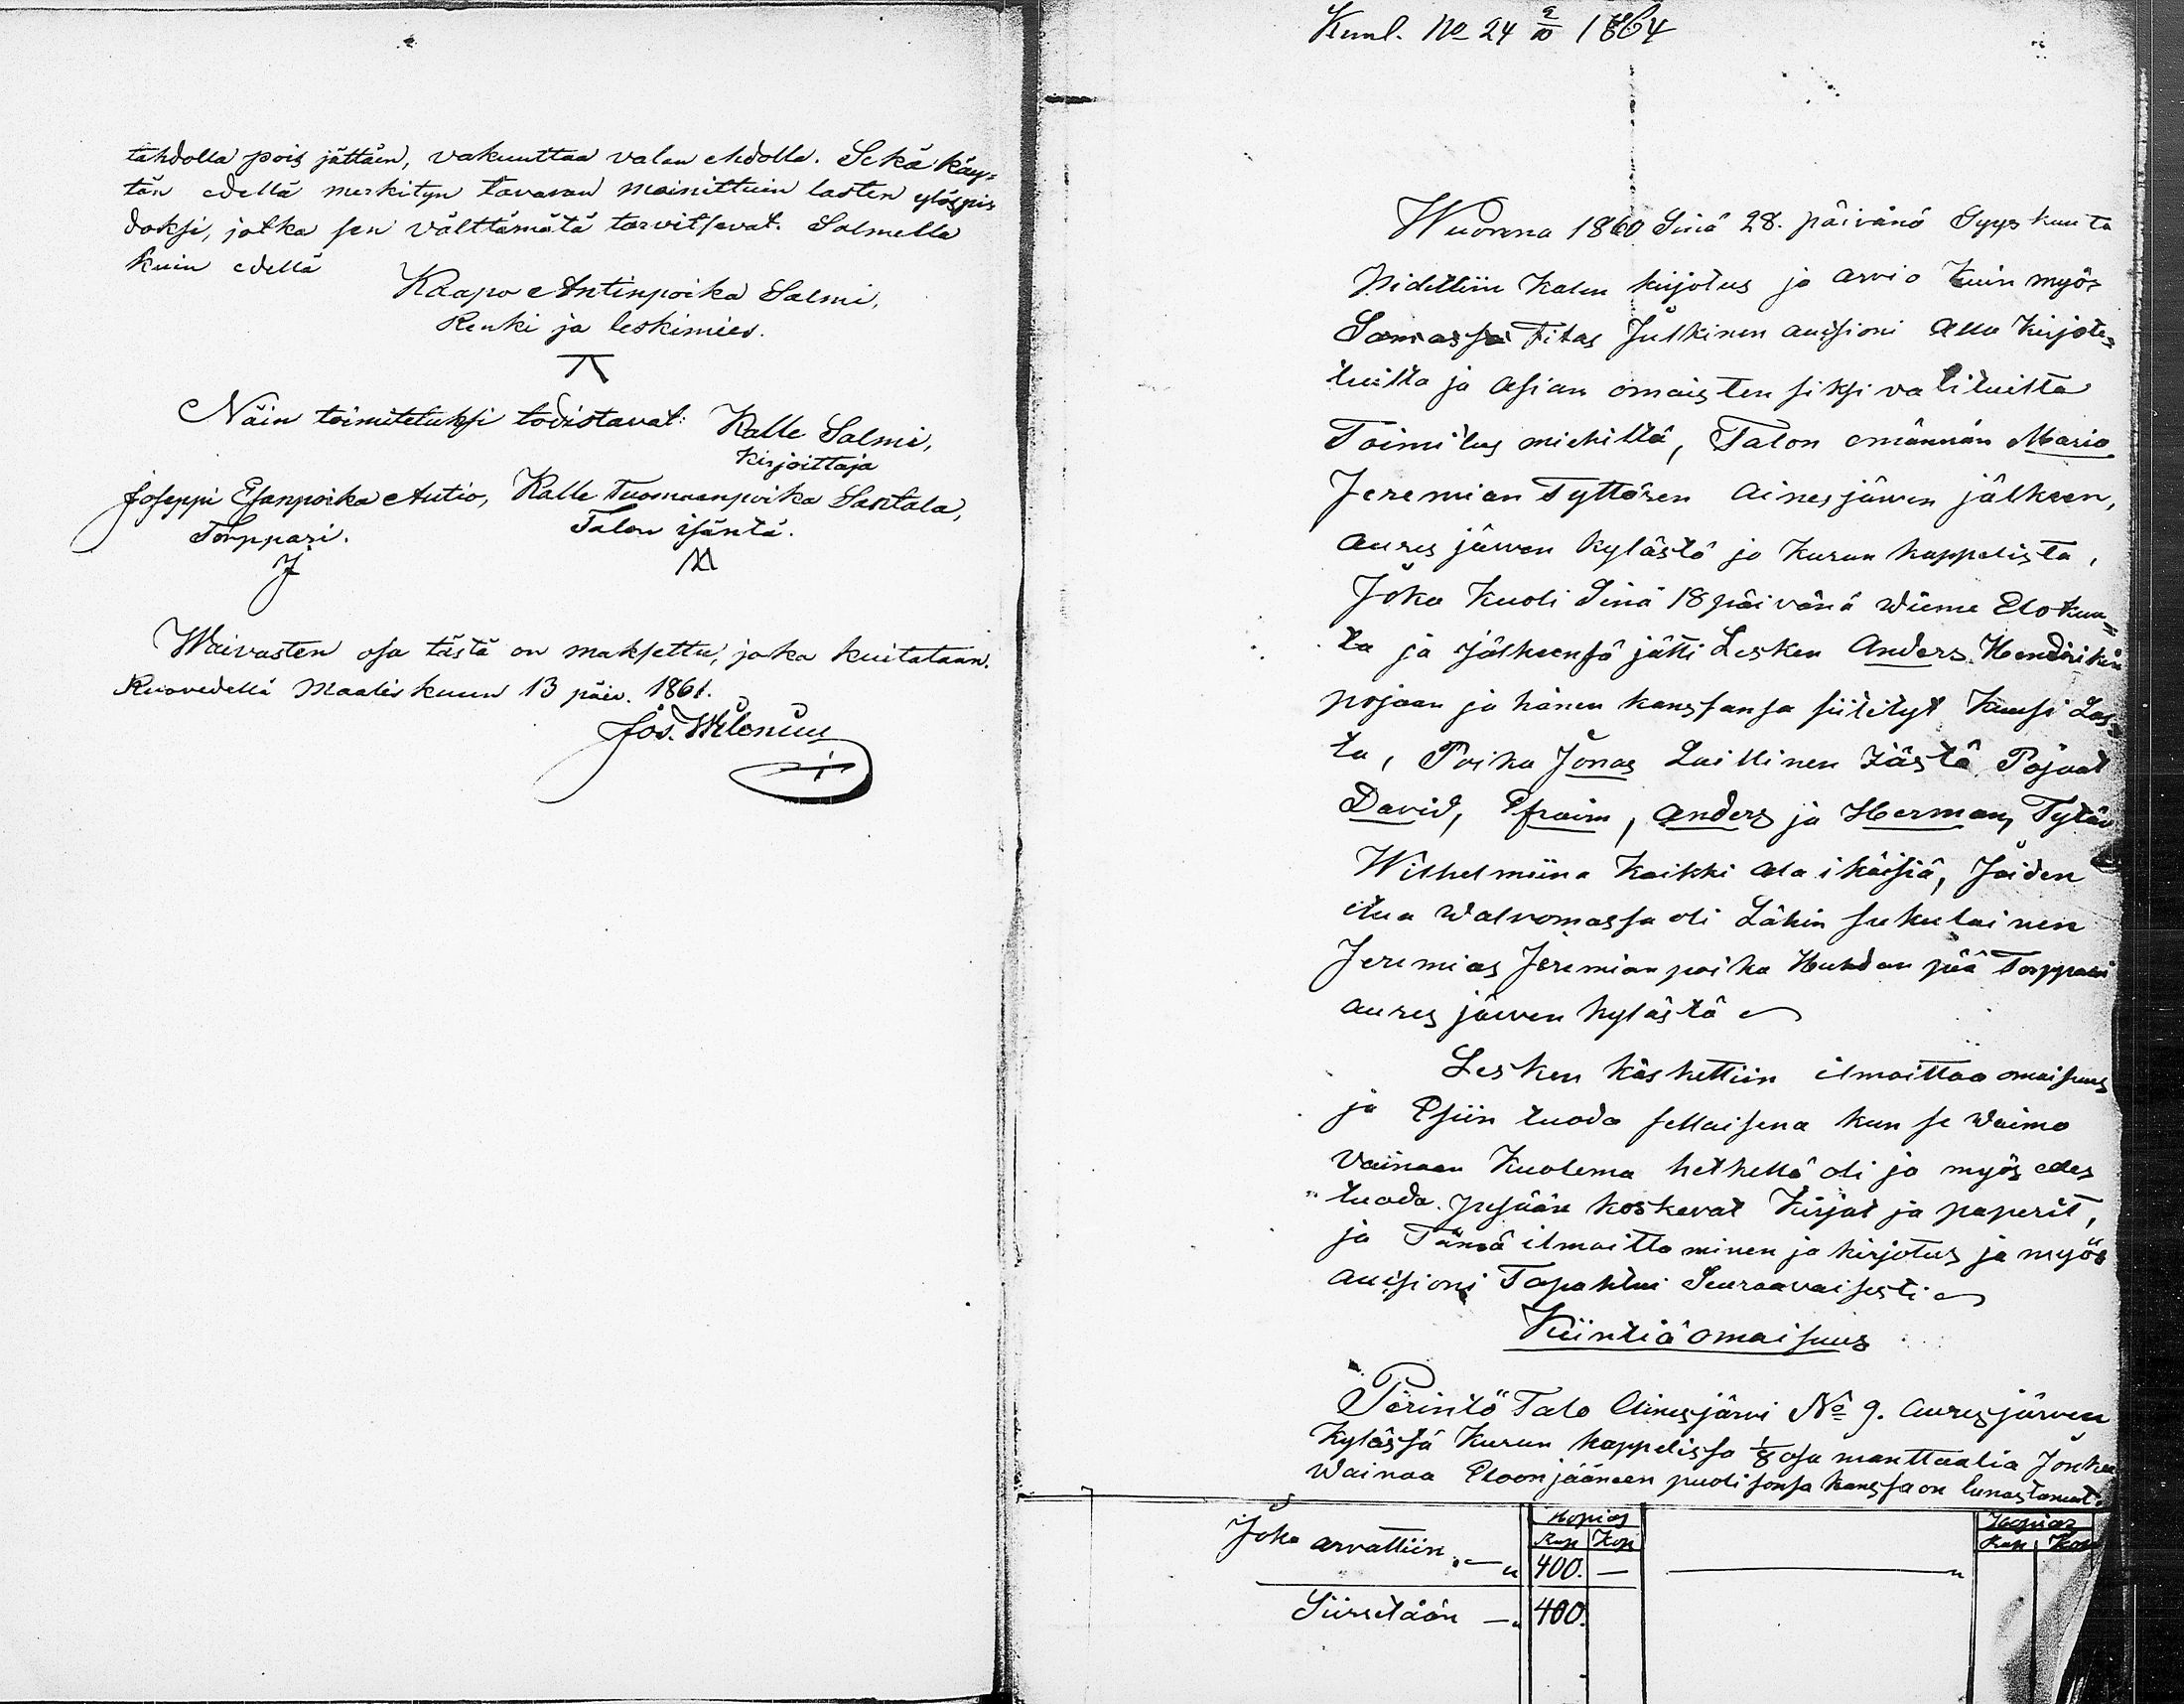 tahdolla pois jättäin, vakuuttaa valan ehdolla. Sekä käy=
tän edellä merkityn tavaran mainittuin lasten ylöspi=
doksi, jotka sen välttämätä tarvitsevat. Salmella
kuin edellä
Kaapo Antinpoika Salmi,
Renki ja leskimies.
Näin toimitetuksi todistavat: Kalle Salmi,
Kirjoittaja
Joseppi Esanpoika Autio, Kalle Tuomaanpoika Santala,
Torppari. Talon isäntä.
Waivasten osa tästä on maksettu, joka kuitataan.
Ruovedellä Maaliskuun 13 päiv. 1861.
Jos. Wilenius
Kunl. No 24 2/10 1864
Wuonna 1860 Sinä 28. päivänä Syyskuuta
Pidettiin Kalun kirjotus ja arvio Kuin myös
Samassa Titas Julkinen aucsioni Alla Kirjote=
tuilta ja Asian omaisten siksi valituilta
Toimitus miehiltä, Talon emännän Maria
Jeremian Tyttären Ainesjärven jälkeen,
aures järven kylästä ja Kurun kappelista,
Joka Kuoli Sinä 18 päivänä wiime Elokuu=
ta ja jälkeensä jätti Lesken Anders Hendrikin
pojaan ja hänen kanssansa siitetyt Kuusi Las=
ta, Poika Jonas Laillinen Iästä, Pojaat
David, Efraim, Anders ja Herman, Tytär
Wilhelmiina Kaikki ala ikäisiä, Joiden
etua walvomassa oli Lähin sukulainen
Jeremias Jeremian poika Huhdan pää Torppari
aures järven kylästä
Lesken käskettiin ilmoittaa omaisuus
ja Esiin tuoda sellaisena kun se waimo
vainaan Kuolema hetkellä oli ja myös edes
tuoda pesään koskevat Kirjat ja paperit,
ja Tämä ilmoittaminen ja kirjotus ja myös
aucsioni Tapahtui Seuraavaisesti
Kiintiä omaisuus
Perintö Talo Ainesjärvi No 9. Auresjärven
Kylässä Kurun kappelissa 1/8 osa manttaalia Jonka
Wainaa Eloon jääneen puolisonsa kanssa on lunastanut.
Hopias Hopias
Rup Kop Rup Kop
Joka arvattiin 400. —
Siirretään 400.